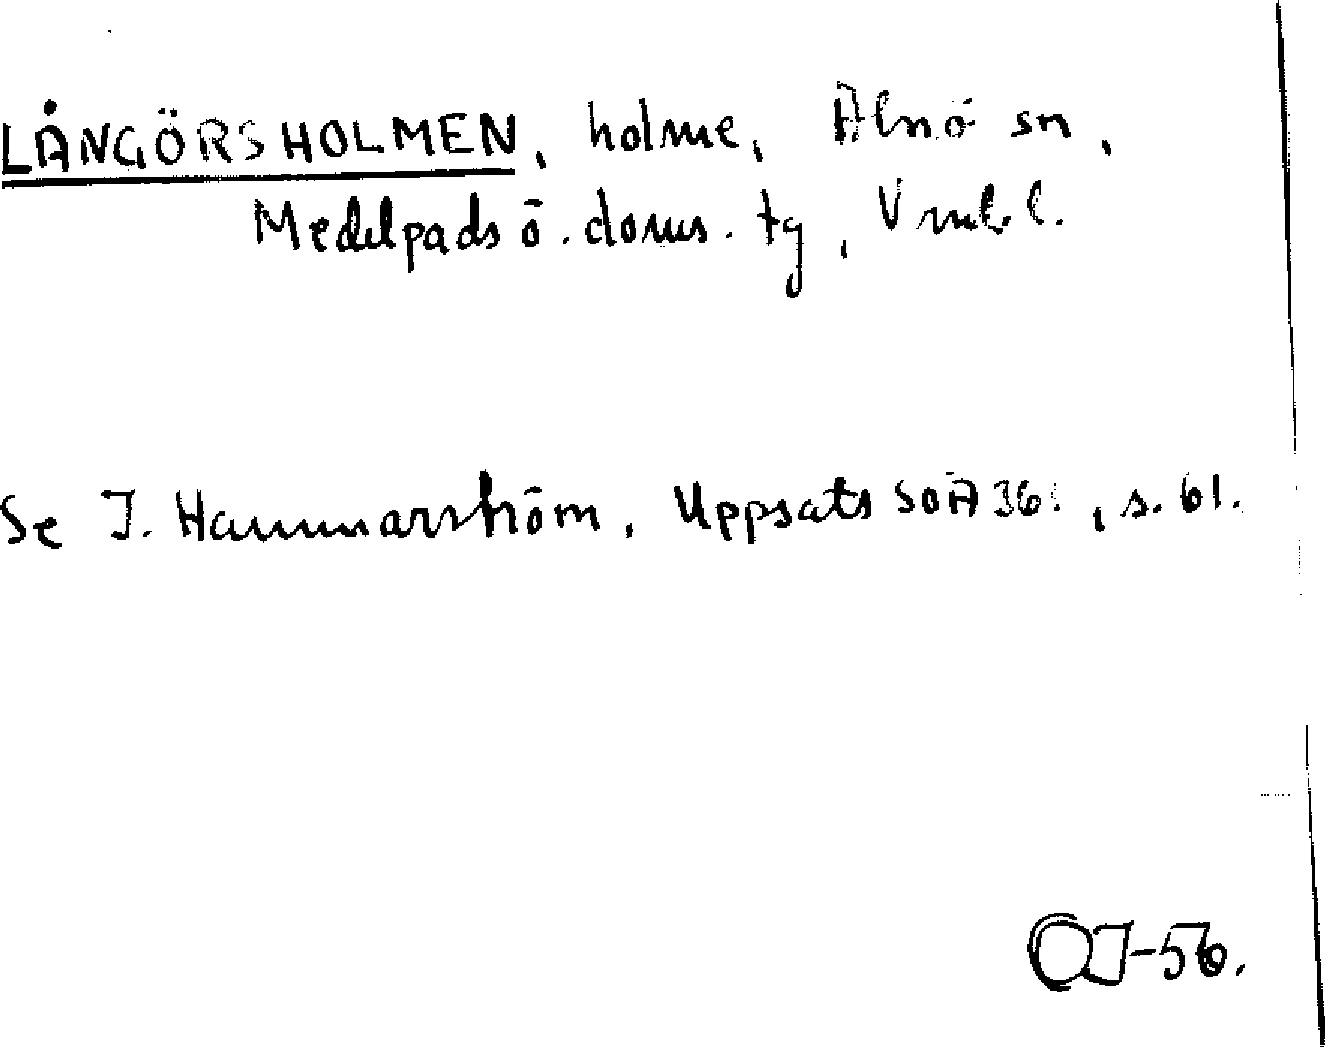 LÅNGÖRSHOLMEN, holme, Alnö sn,
Medelpads ö. doms. tg, Vnrl. l.
Se J. Hammarström, Uppsats SOÄ 36: , s. 61.
OJ-56.